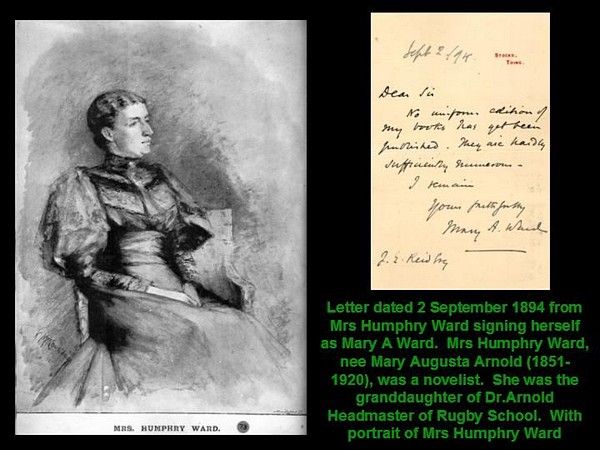 MRS. HUMPHRY WARD.
73
Sept 2/94.
STOCKS,
TRING.
Dear Sir
No uniform edition of
my books has yet been
published. They are hardly
sufficiently numerous -
I remain
Yours faithfully
Mary A. Ward
J. E. Reid Esq
Letter dated 2 September 1894 from
Mrs Humphry Ward signing herself
as Mary A Ward. Mrs Humphry Ward,
nee Mary Augusta Arnold (1851-
1920), was a novelist. She was the
granddaughter of Dr.Arnold
Headmaster of Rugby School. With
portrait of Mrs Humphry Ward